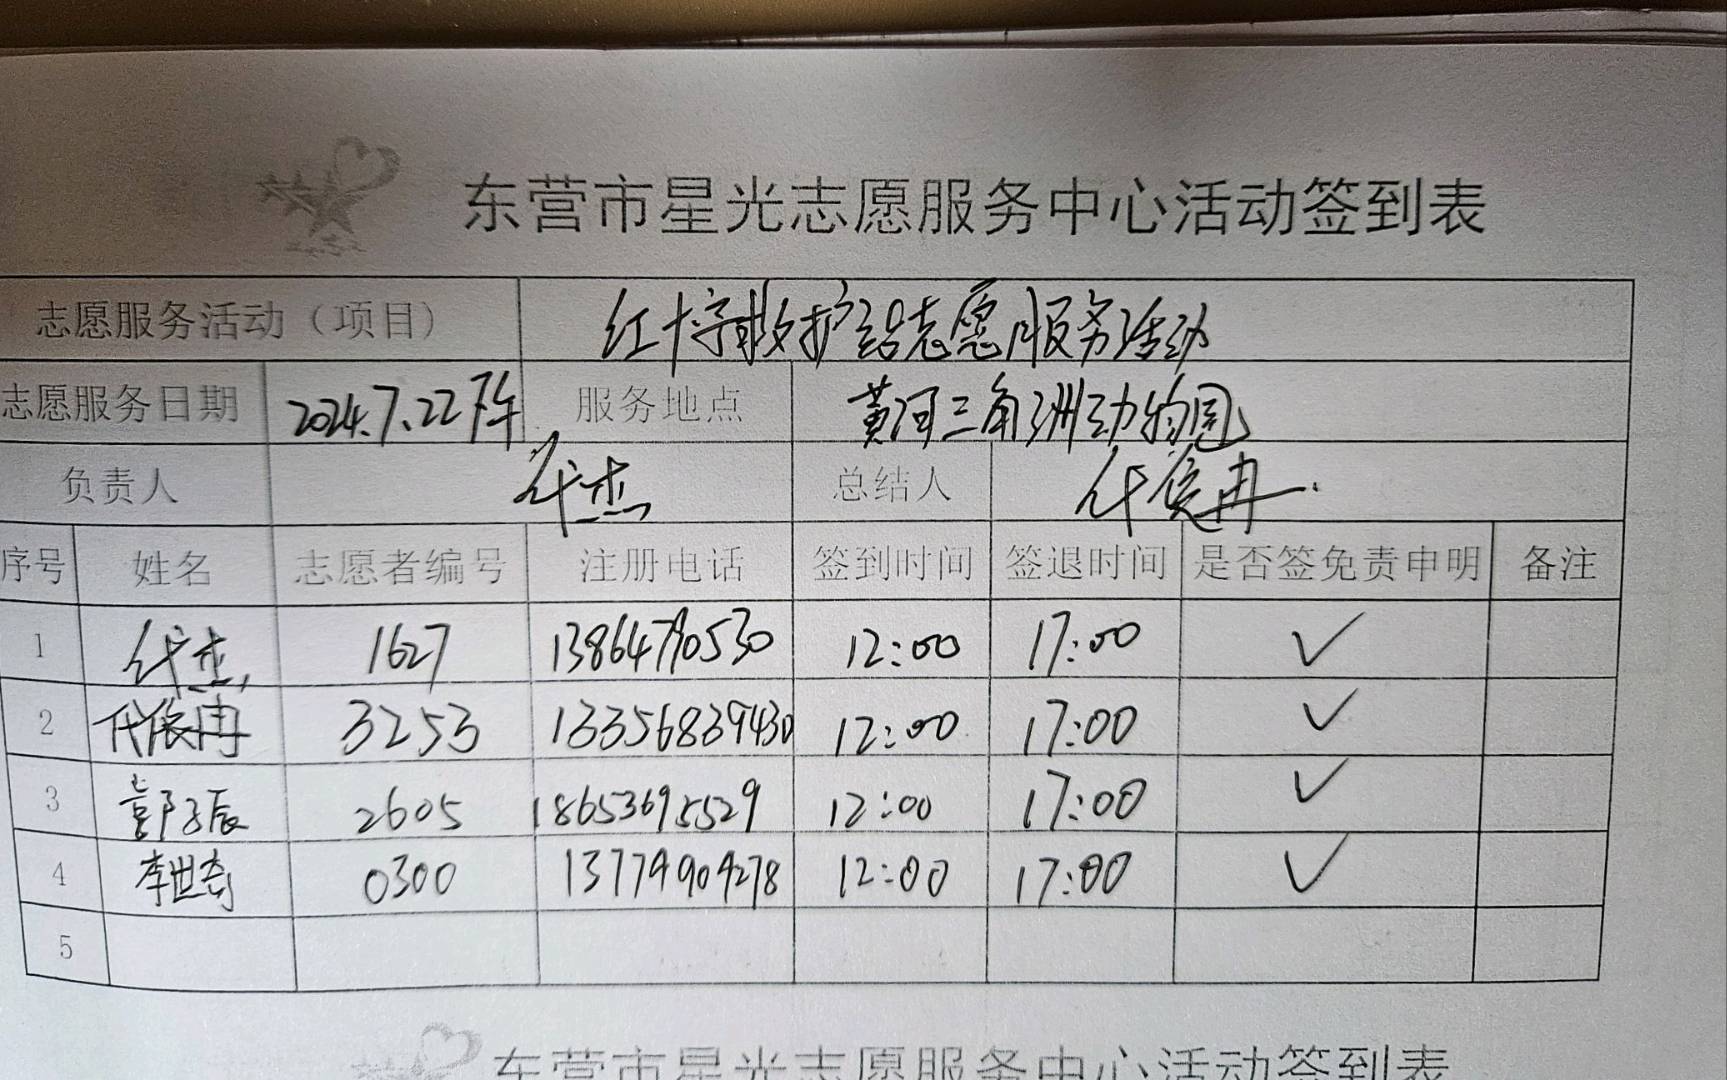 东营市星光志愿服务中心活动签到表
志愿服务活动（项目） 红十字救护站志愿服务活动
志愿服务日期 2024.7.22下午 服务地点 黄河三角洲动物园
负责人 代杰 总结人 代
序号 姓名 志愿者编号 注册电话 签到时间 签退时间 是否签免责申明 备注
1 代杰 1627 13864790530 12:00 17:00 ✓
2 代依冉 3253 13356839430 12:00 17:00 ✓
3 2605 18653695529 12:00 17:00 ✓
4 李世奇 0300 13774904278 12:00 17:00 ✓
5
东营市星光志愿服务中心活动签到表